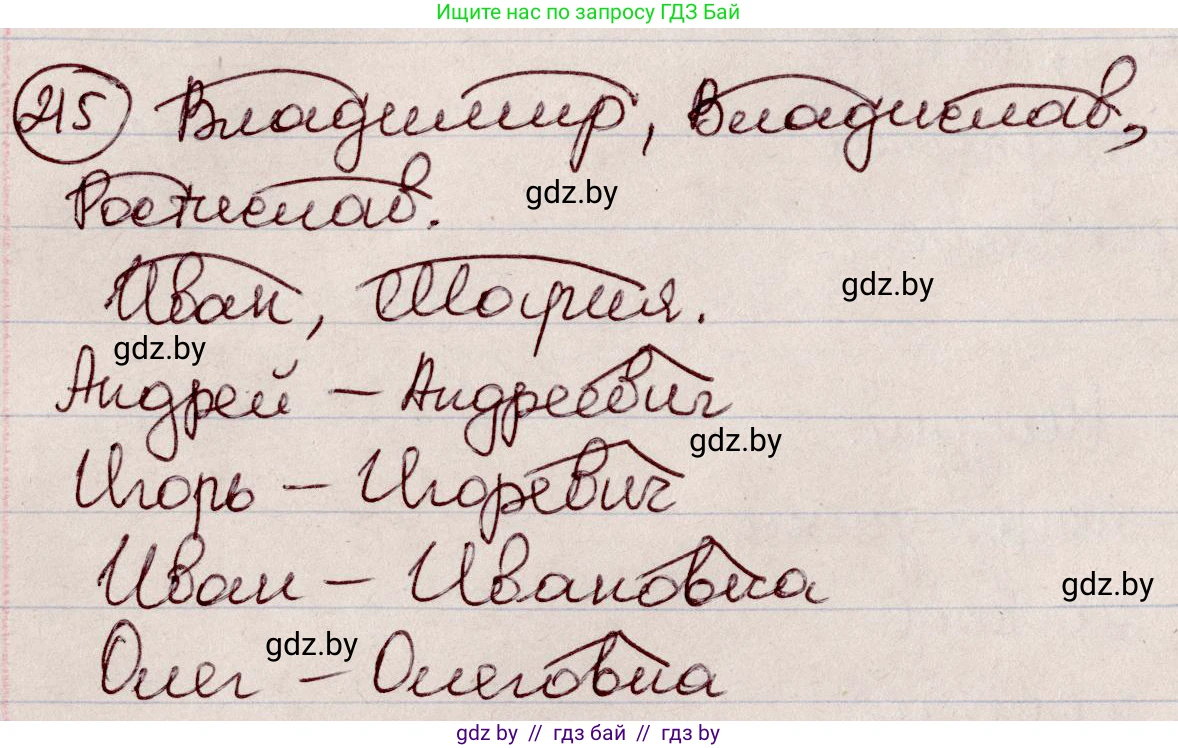 Ищите нас по запросу ГДЗ Бай
215 Владимир, Владислав,
Ростислав.
gdz.by
Иван, Мария.
gdz.by
gdz.by
Андрей – Андреевич
gdz.by
Игорь – Игоревич
Иван – Ивановна
gdz.by
gdz.by
Олег – Олеговна
gdz.by // гдз бай // гдз by